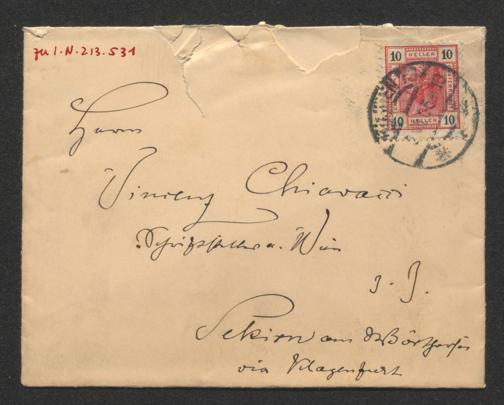 zu I.N. 213.531
10 HELLER 10
10 HELLER 10
WIEN
Herrn
Vincenz Chiavacci
Schriftsteller a. Wien
z. Z.
Sekirn am Wörthersee
via Klagenfurt